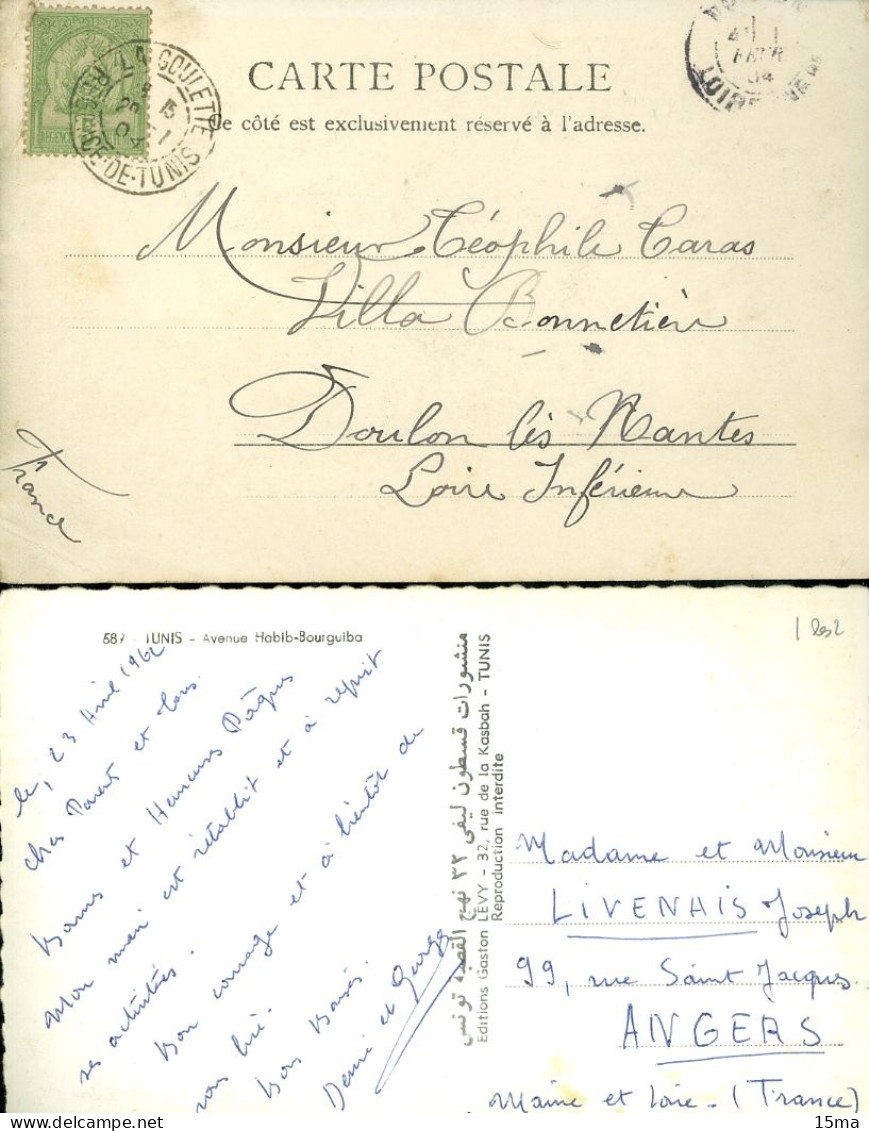 POSTES
RÉGENCE
LA GOULETTE
5
04
CE-DE-TUNIS
CARTE POSTALE
Ce côté est exclusivement réservé à l'adresse.
FEVR
04
LOIRE
Monsieur Céophile Caras
Villa Bonnetière
Doulon lès Nantes
Loire Inférieure
France
587 - TUNIS - Avenue Habib-Bourguiba
le, 23 Avril 1962
chers Parents et tous
Bonnes et Heureuses Pâques
Mon mari est rétablit et à reprit
ses activitées.
Bon courage et à bientôt de
vous lire.
Bons Baisés.
منشورات قسطون ليفي ٣٢ نهج القصبة تونس
Editions Gaston LÉVY - 32, rue de la Kasbah - TUNIS
Reproduction interdite
Madame et Monsieur
LIVENAIS Joseph
99, rue Saint Jacques
ANGERS
Maine et Loire - (France)
15ma